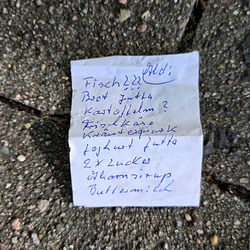 Aldi
Fisch???
Brot Jutta
Kartoffeln ?
Frischkäse
Kräuterquark
Joghurt Jutta
2x Zucker
Ahornsirup
Buttermilch